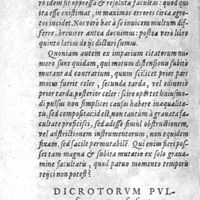 roidem sit oppressa & resoluta facultas: quod qui
ita esse existimat, in maximos errores circa ægros
tes incidet. Nos vero hæc à se inuicem multum dif
ferre, breuiter antea docuimus: postea verò libro
quinto latini de ijs dicturi sumus.
Quoniam autem ex imparium citatorum nu
mero sunt quidam, qui motum distensionis subitò
mutant ad contrarium, quum scilicet prior pars
motus fuerit celer, secunda tarda, vel diuerso
prior tarda, posterior celer: scire oportet huiusmo
di pulsus non simplices causas habere inæqualita
tis, sed compositas: id est, non tantùm à grauata fa
cultate proficisci, sed adesse illi obstructionem,
vel adstrictionem instrumentorum, non equidem
fixam, sed facile permutabilē. Qui enim fieri pos
set tam magna & subita mutatio ex solo graua
mine facultatis, quod paruo momento temporis
reijci non potest?
DICROTORVM PVL-